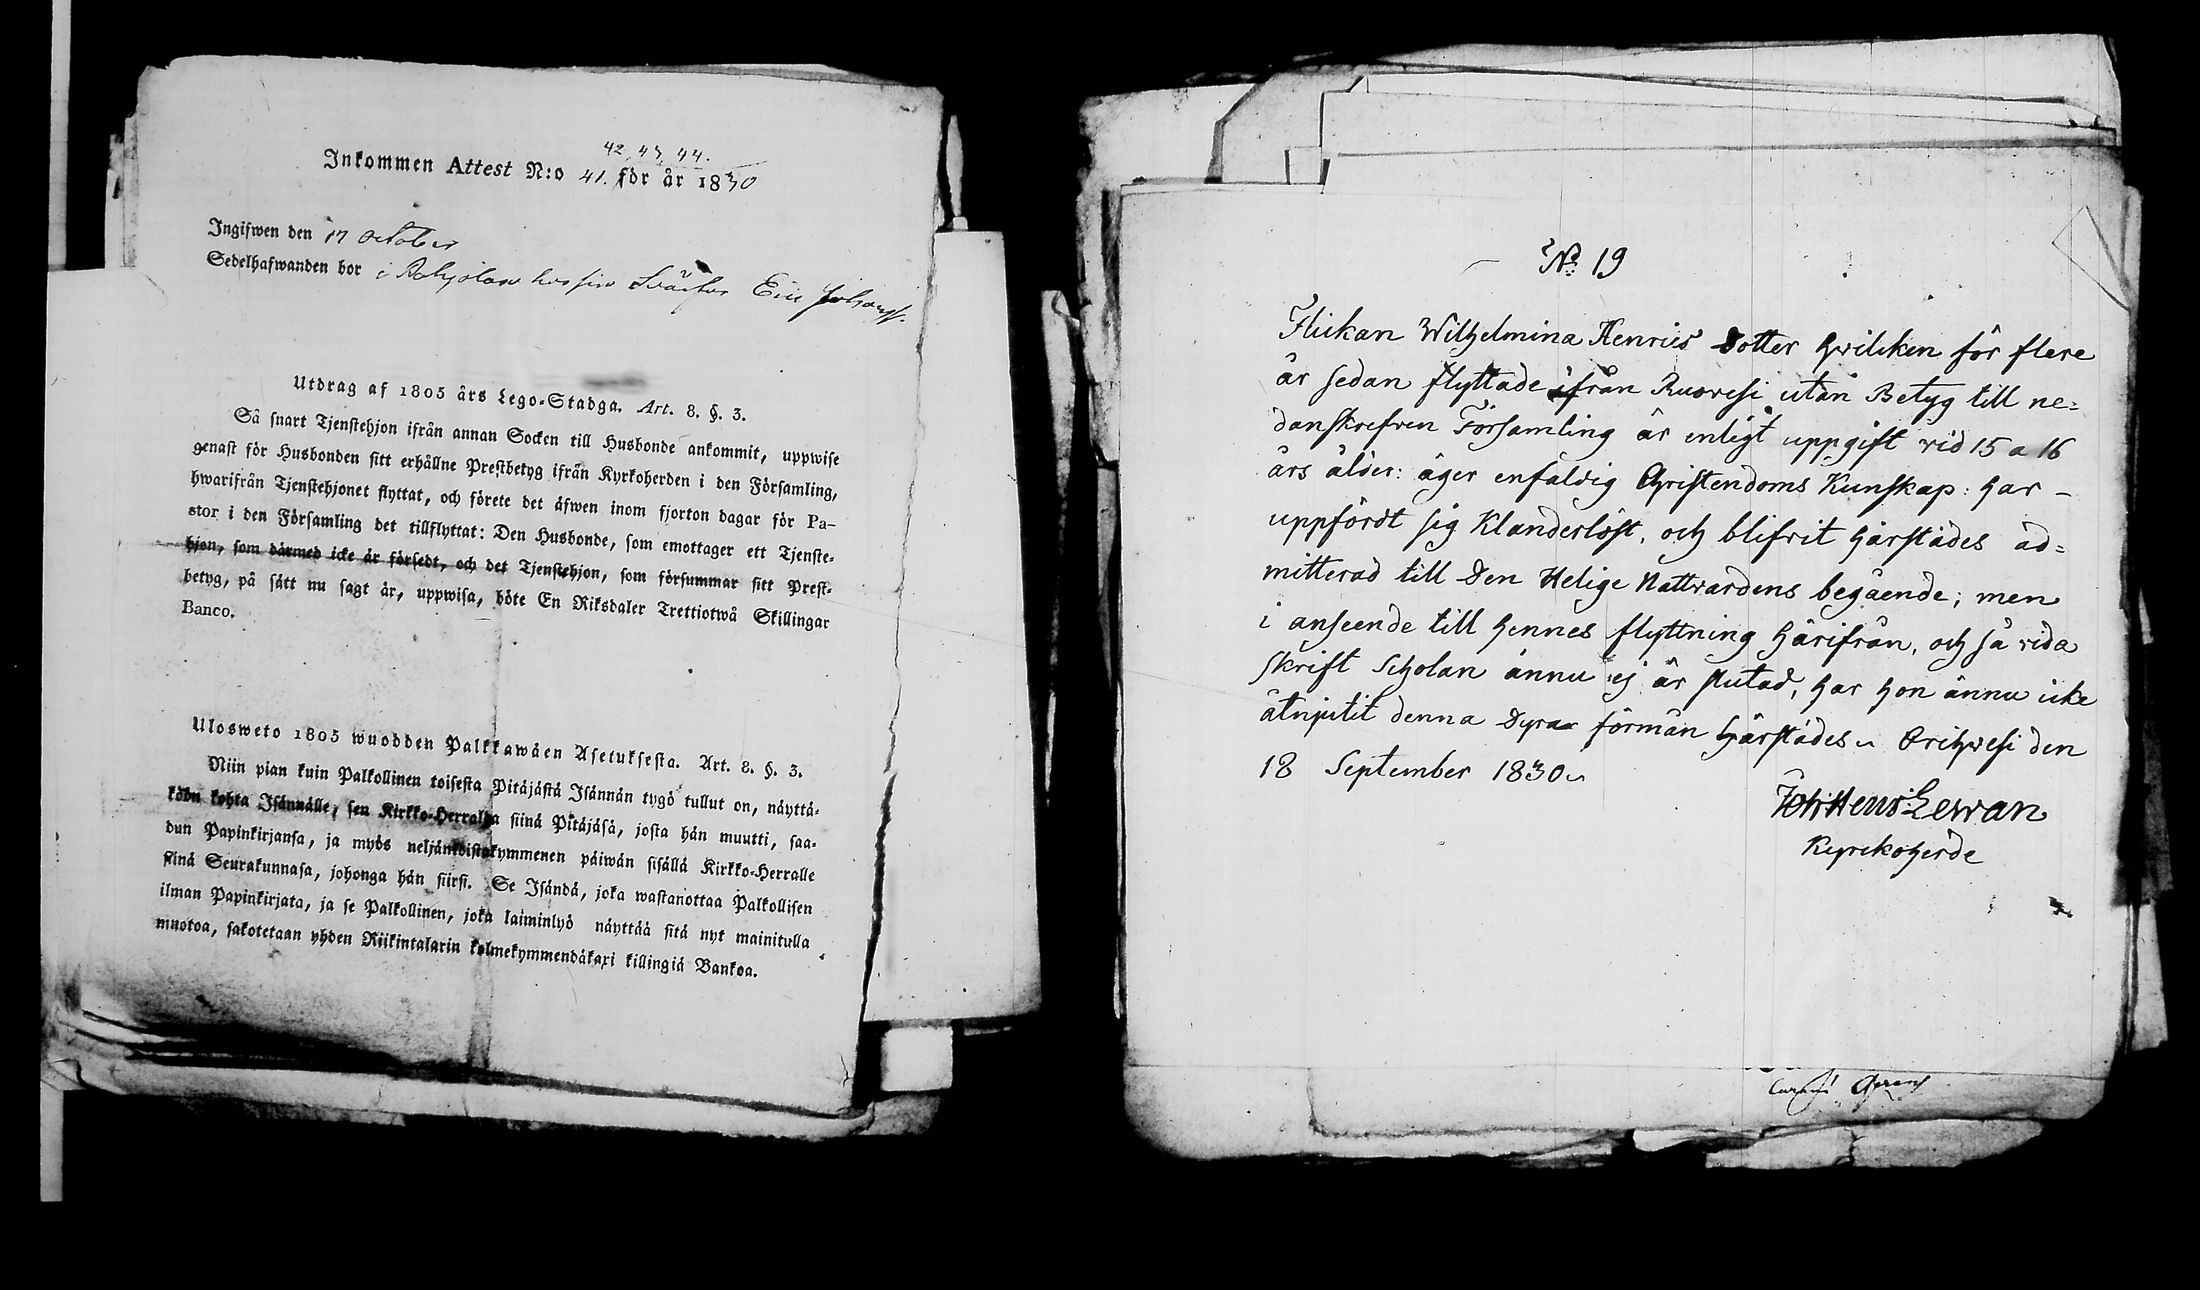 42, 43, 44.
Inkommen Attest N:o 41. för år 1830
Ingifwen den 17 October
Sedelhafwanden bor i Pohjolan hos sin Svåger Eric Johanss.
Utdrag af 1805 års Lego-Stadga. Art. 8. §. 3.
Så snart Tjenstehjon ifrån annan Socken till Husbonde ankommit, uppwise
genast för Husbonden sitt erhållne Prestbetyg ifrån Kyrkoherden i den Församling,
hwarifrån Tjenstehjonet flyttat, och förete det äfwen inom fjorton dagar för Pa-
stor i den Församling det tillflyttat: Den Husbonde, som emottager ett Tjenste-
hjon, som därmed icke är försedt, och det Tjenstehjon, som försummar sitt Prest-
betyg, på sätt nu sagt är, uppwisa, böte En Riksdaler Trettiotwå Skillingar
Banco.
Ulosweto 1805 wuodden Palkkawäen Asetuksesta. Art. 8. §. 3.
Niin pian kuin Palkollinen toisesta Pitäjästä Isännän tygö tullut on, näyttä-
köön kohta Isännälle, sen Kirkko-Herralda siinä Pitäjäsä, josta hän muutti, saa-
dun Papinkirjansa, ja myös neljäntoistakymmenen päiwän sisällä Kirkko-Herralle
siinä Seurakunnasa, johonga hän siirsi. Se Isändä, joka wastanottaa Palkollisen
ilman Papinkirjata, ja se Palkollinen, joka laiminlyö näyttää sitä nyt mainitulla
muotoa, sakotetaan yhden Riikintalarin kolmekymmendäkaxi killingiä Bankoa.
No 19
Flickan Wilhelmina Henrics Dotter hvilcken för flere
år sedan flyttade ifrån Ruovesi utan Betyg till ne=
danskrefven Församling är enligt uppgift vid 15 a 16
års ålder: äger enfaldig Christendoms Kunskap: har –
uppfördt sig Klanderlöst, och blifvit härstädes ad=
mitterad till Den Helige Nattvardens begående; men
i anseende till hennes flyttning härifrån, och så vida
skrift Scholan ännu ej är slutad, har hon ännu icke
åtnjutit denna Dyra förmån härstädes. Orihvesi den
18 September 1830.
Joh: Henr: Lewan
Kyrckoherde